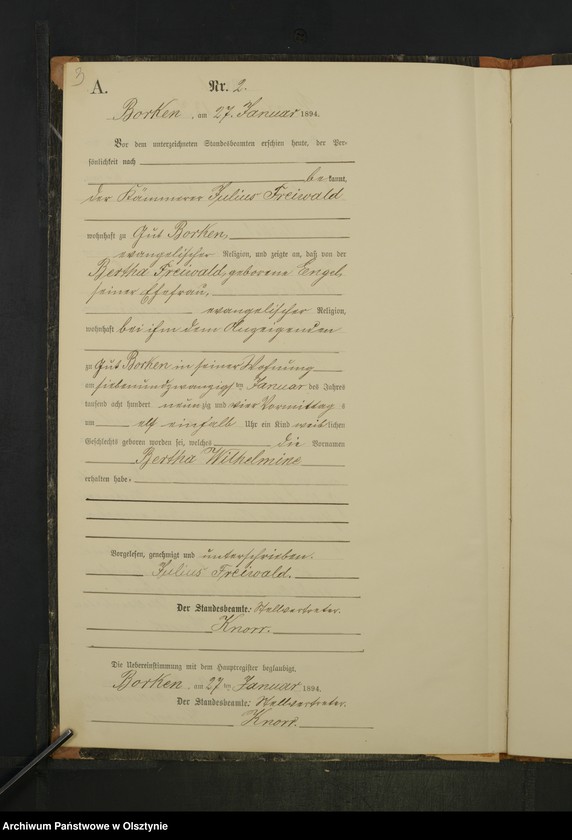 3
A.
Nr. 2.
Borken, am 27. Januar 1894.
Vor dem unterzeichneten Standesbeamten erschien heute, der Per-
sönlichkeit nach
be kannt,
der Kämmerer Julius Freiwald
wohnhaft zu Gut Borken,
evangelischer Religion, und zeigte an, daß von der
Bertha Freiwald, geborene Engel,
seiner Ehefrau,
evangelischer Religion,
wohnhaft bei ihm dem Anzeigenden
zu Gut Borken in seiner Wohnung
am siebenundzwanzigsten Januar des Jahres
tausend acht hundert neunzig und vier Vormittags
um elf einhalb Uhr ein Kind weiblichen
Geschlechts geboren worden sei, welches die Vornamen
Bertha Wilhelmine
erhalten habe.
Vorgelesen, genehmigt und unterschrieben.
Julius Freiwald.
Der Standesbeamte. Stellvertreter.
Knorr.
Die Uebereinstimmung mit dem Hauptregister beglaubigt,
Borken, am 27 ten Januar 1894.
Der Standesbeamte. Stellvertreter.
Knorr.
Archiwum Państwowe w Olsztynie